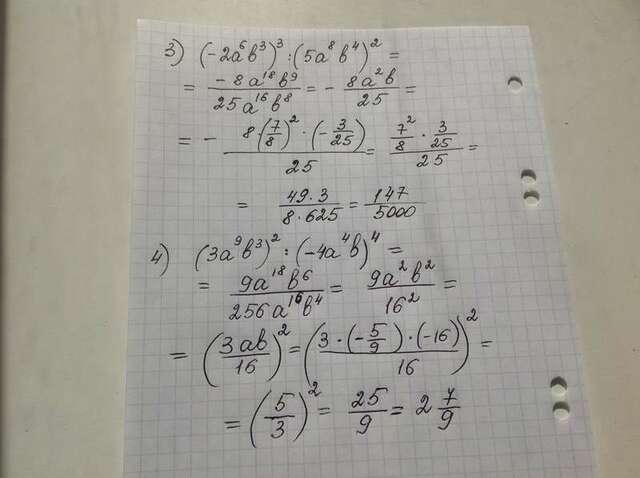 3) (-2a⁶b³)³ : (5a⁸b⁴)² =
= \frac{-8a¹⁸b⁹}{25a¹⁶b⁸} = - \frac{8a²b}{25} =
= - \frac{8(\frac{7}{8})² · (-\frac{3}{25})}{25} = \frac{\frac{7²}{8} · \frac{3}{25}}{25} =
= \frac{49·3}{8·625} = \frac{147}{5000}
4) (3a⁹b³)² : (-4a⁴b)⁴ =
= \frac{9a¹⁸b⁶}{256a¹⁶b⁴} = \frac{9a²b²}{16²} =
= (\frac{3ab}{16})² = (\frac{3·(-\frac{5}{9})·(-16)}{16})² =
= (\frac{5}{3})² = \frac{25}{9} = 2\frac{7}{9}